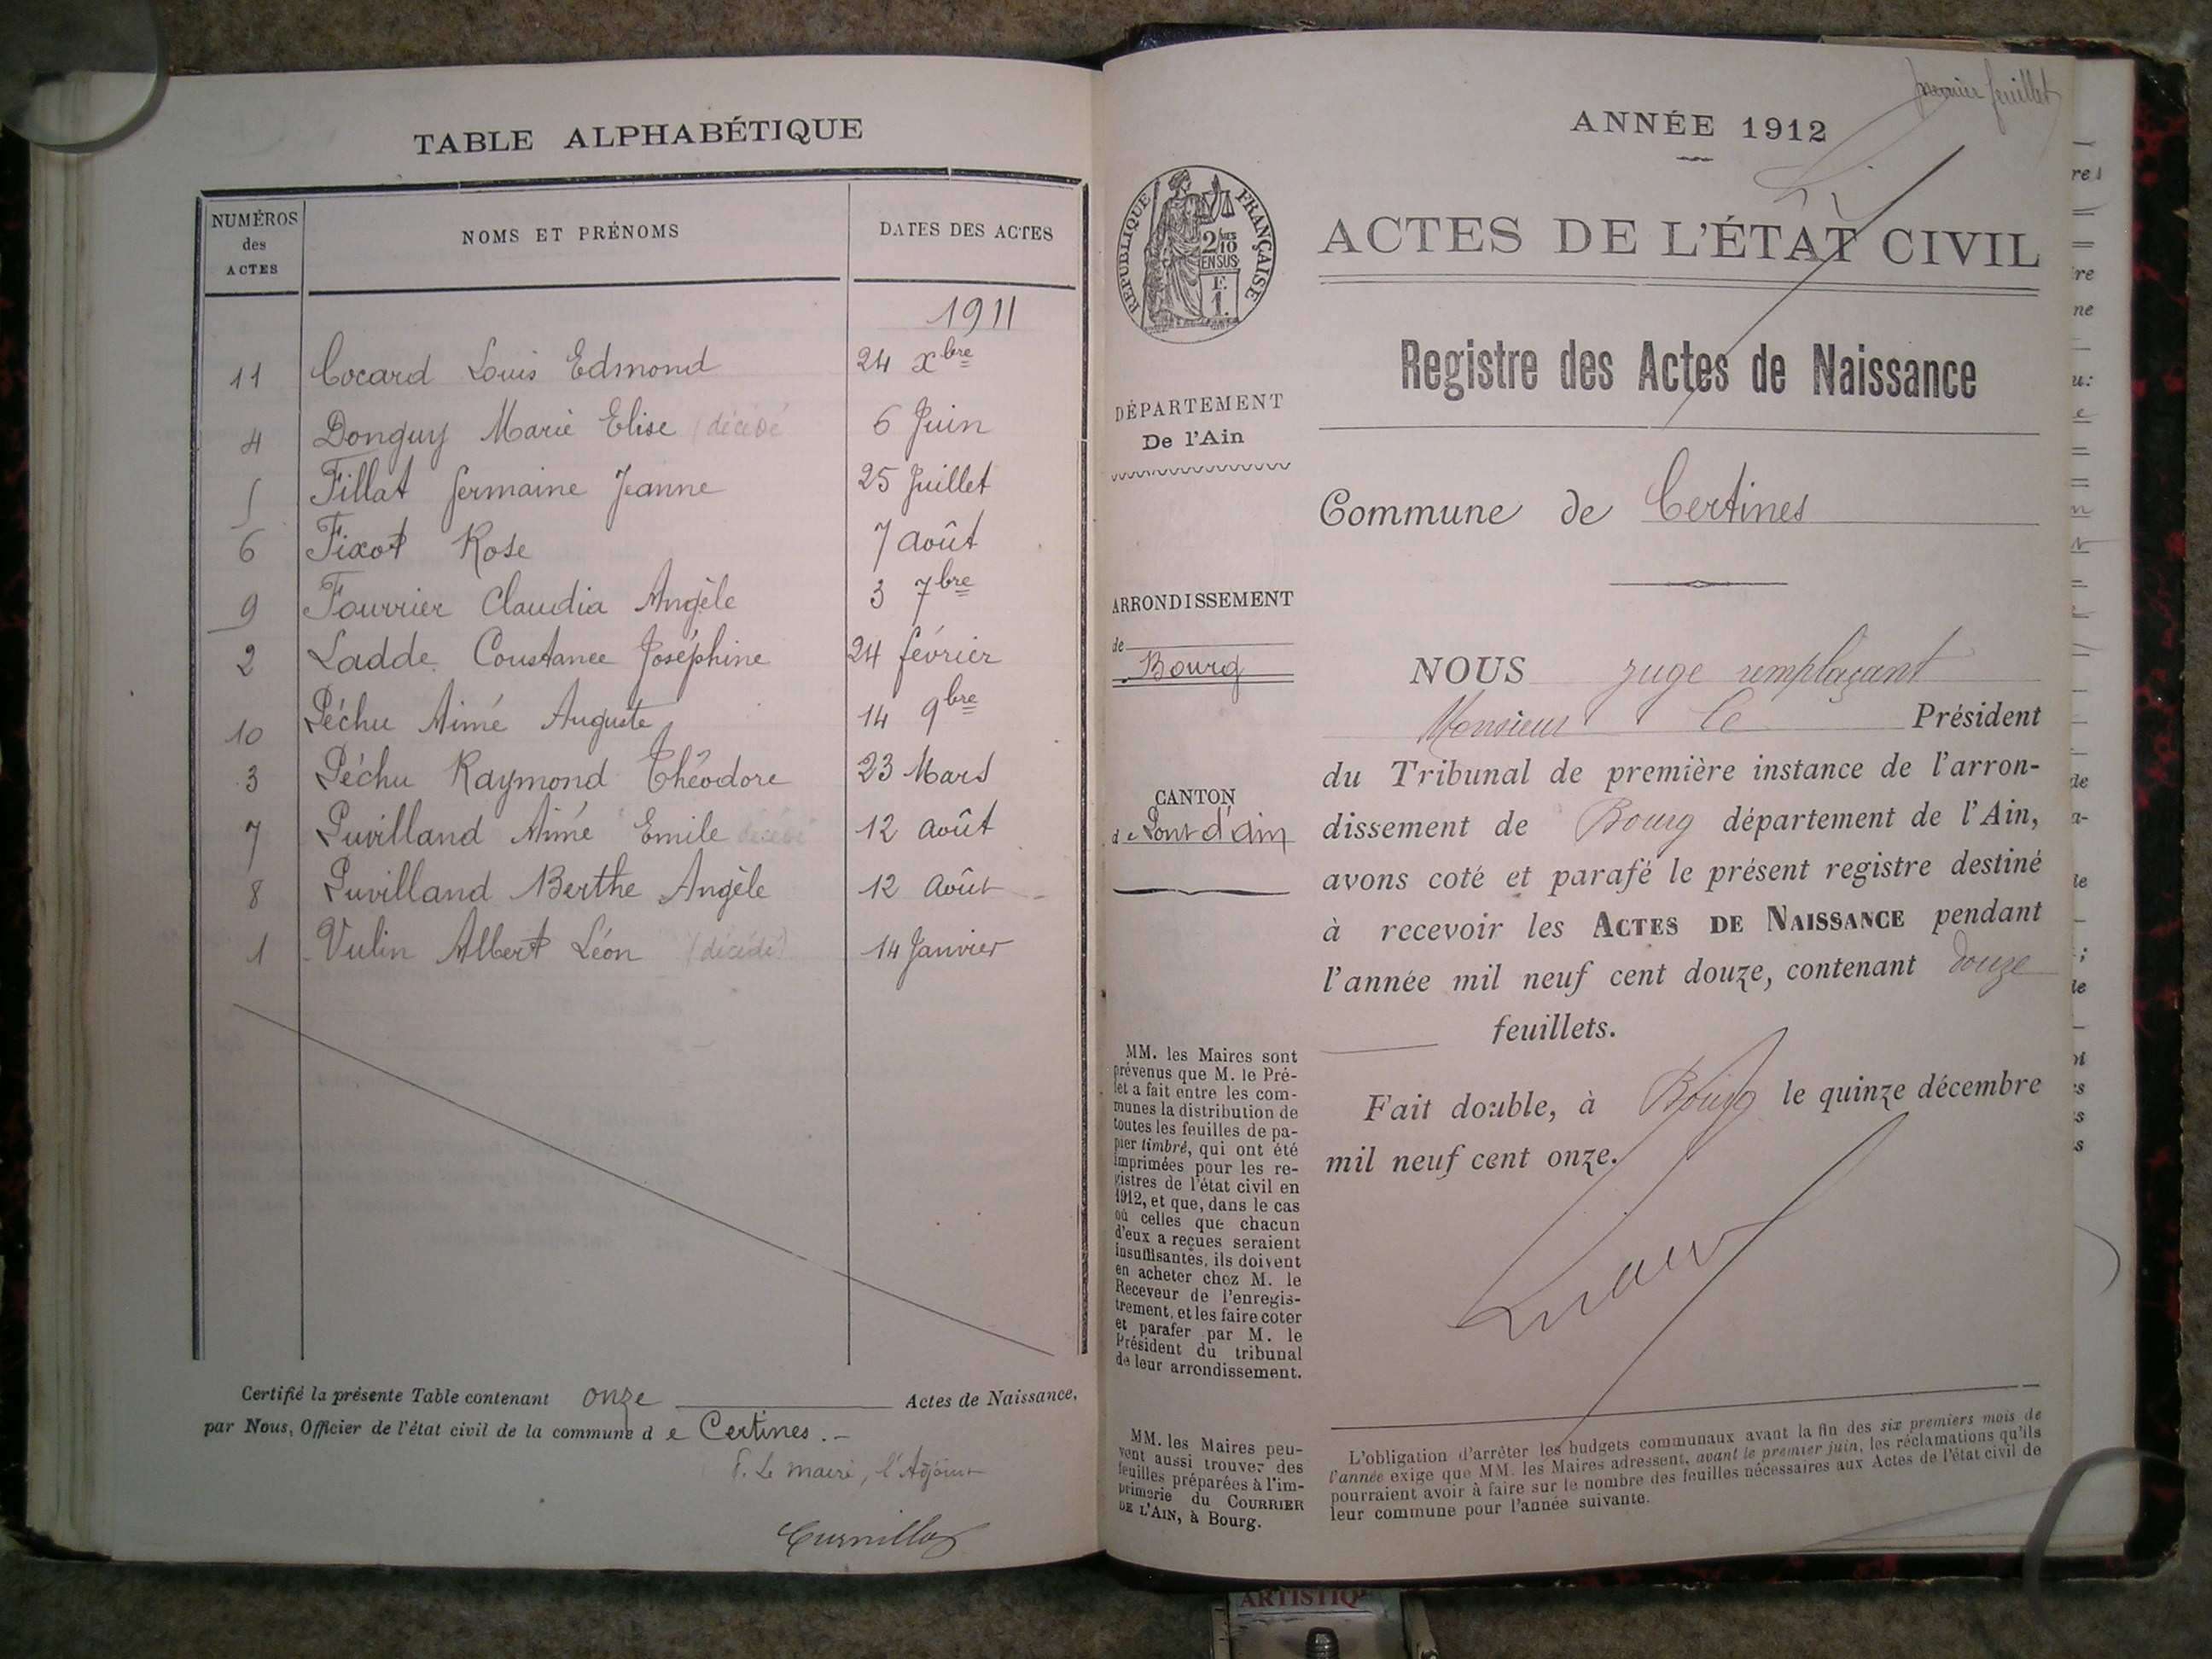 TABLE ALPHABÉTIQUE
NUMÉROS des ACTES NOMS ET PRÉNOMS DATES DES ACTES
1911
11 Cocard Louis Edmond 24 Xbre
4 Donguy Marie Elise (décédé 6 Juin
5 Fillat Germaine Jeanne 25 Juillet
6 Fixot Rose 7 août
9 Fourrier Claudia Angèle 3 7bre
2 Ladde Constance Joséphine 24 février
10 Péchu Aimé Auguste 14 9bre
3 Péchu Raymond Théodore 23 Mars
7 Puvilland Aimé Emile décédé 12 août
8 Puvilland Berthe Angèle 12 Août
1 Vulin Albert Léon (décédé) 14 Janvier
Certifié la présente Table contenant onze Actes de Naissance,
par Nous, Officier de l'état civil de la commune d e Certines.-
P. Le maire, l'Adjoint
premier feuillet
ANNÉE 1912
ACTES DE L'ÉTAT CIVIL
Registre des Actes de Naissance
RÉPUBLIQUE FRANÇAISE
2/10
EN SUS
F.
1.
DÉPARTEMENT
De l'Ain
Commune de Certines
ARRONDISSEMENT
de
Bourg
CANTON
de Pont d'ain
NOUS juge remplaçant
Monsieur le Président
du Tribunal de première instance de l'arron-
dissement de Bourg département de l'Ain,
avons coté et parafé le présent registre destiné
à recevoir les ACTES DE NAISSANCE pendant
l'année mil neuf cent douze, contenant douze
feuillets.
Fait double, à Bourg le quinze décembre
mil neuf cent onze.
MM. les Maires sont
prévenus que M. le Pré-
fet a fait entre les com-
munes la distribution de
toutes les feuilles de pa-
pier timbré, qui ont été
imprimées pour les re-
gistres de l'état civil en
1912, et que, dans le cas
où celles que chacun
d'eux a reçues seraient
insuffisantes, ils doivent
en acheter chez M. le
Receveur de l'enregis-
trement, et les faire coter
et parafer par M. le
Président du tribunal
de leur arrondissement.
MM. les Maires peu-
vent aussi trouver des
feuilles préparées à l'im-
primerie du COURRIER
DE L'AIN, à Bourg.
L'obligation d'arrêter les budgets communaux avant la fin des six premiers mois de
l'année exige que MM. les Maires adressent, avant le premier juin, les réclamations qu'ils
pourraient avoir à faire sur le nombre des feuilles nécessaires aux Actes de l'état civil de
leur commune pour l'année suivante.
ARTISTIQ